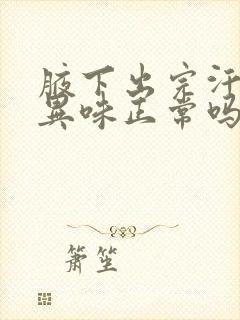 腋下出完汗
异味正常吗
箫笙